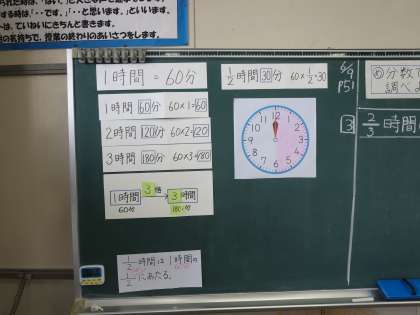 する時は、「・・です。」「・・と思います。」といいます。
ていねいにきちんと書きます。
気持ちで、授業の終わりのあいさつをします。
1時間 = 60分
1時間 60分 60×1=60
2時間 120分 60×2=120
3時間 180分 60×3=180
1時間 3倍 3時間
60分 180分
1/2時間は1時間の
1/2にあたる。
1/2時間 30分 60×1/2=30
12 1 2 3 4 5 6 7 8 9 10 11
6/9
P51
3
め 分数で
調べよ
2/3時間